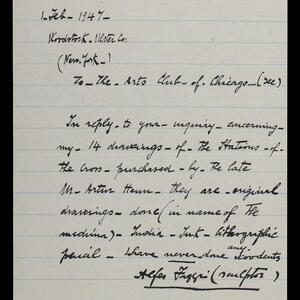 1 Feb - 1947 -
Woodstock. Ulster Co:
(New-York-)
To - the - Arts Club - of - Chicago - (Sec)
In reply - to your - inquiry - concerning -
my - 14 drawings - of - the Stations - of -
the Cross - purchased - by - the late
Mr Artur Heun - they - are - original
drawings - done (in name of the
medium) - India - Ink - lithographic
pencil - I have never done any woodcuts
Alfeo Faggi (sculptor)